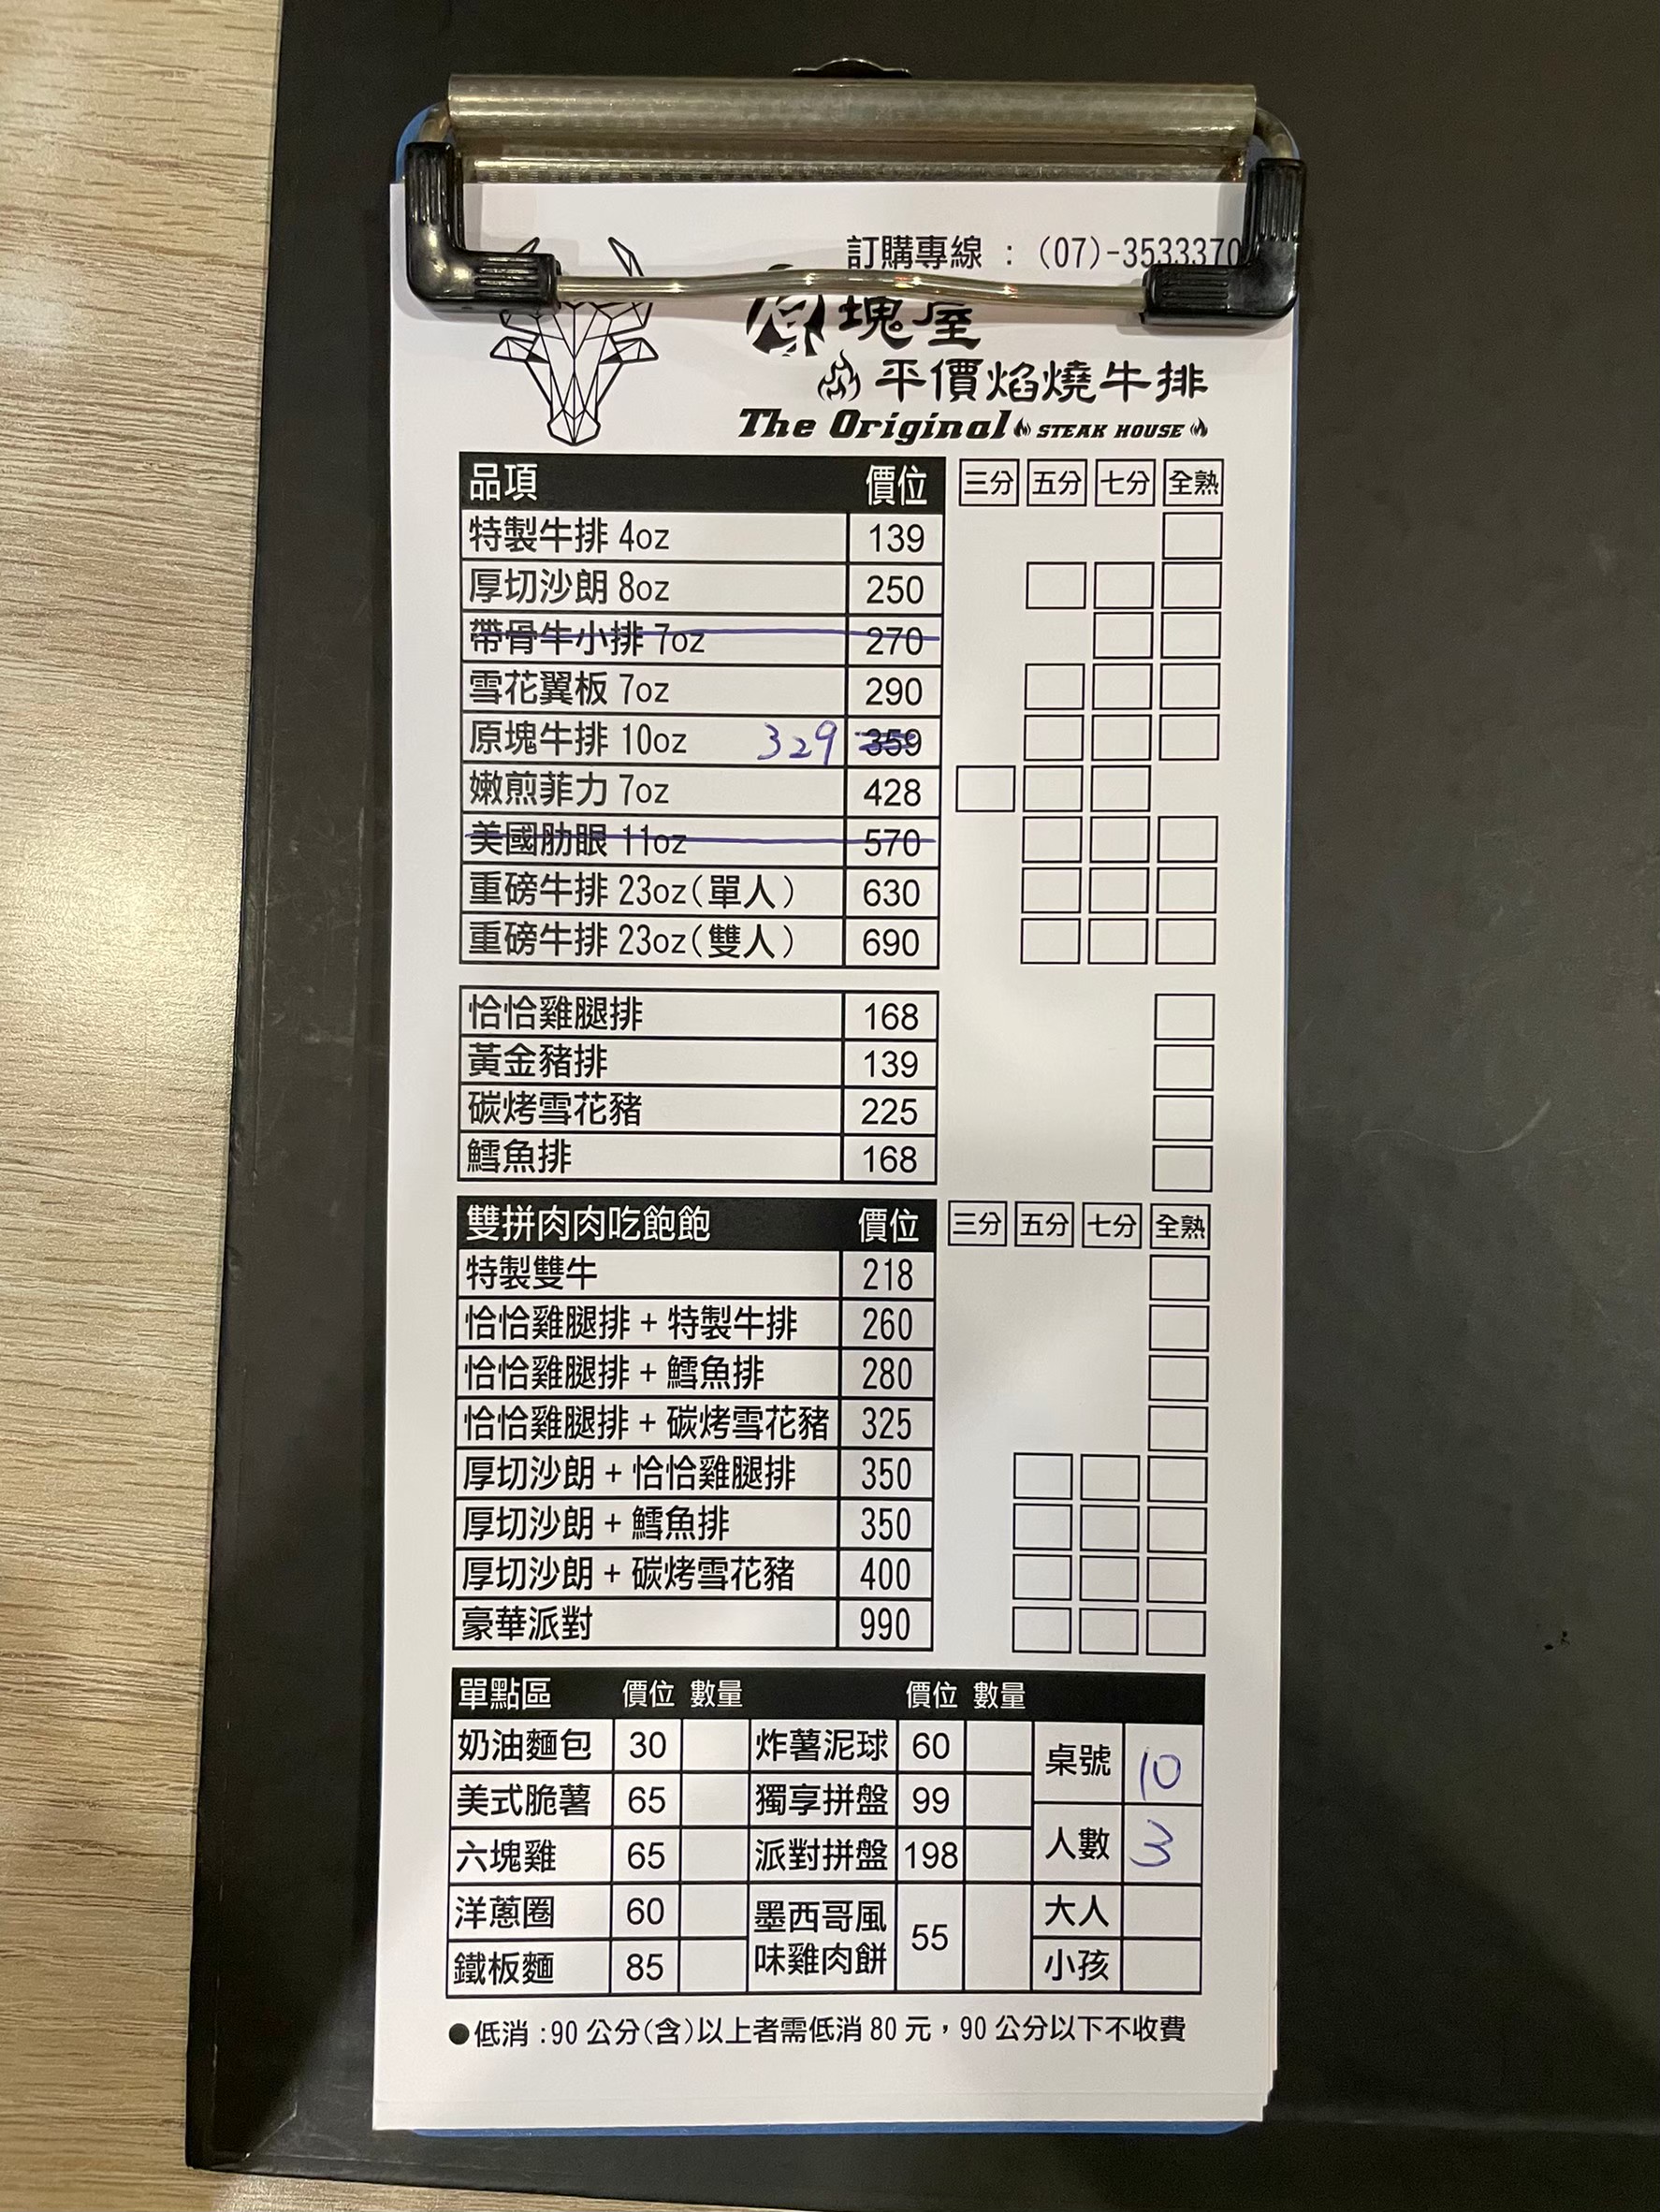 訂購專線 : (07)-3533370
原塊屋
平價焰燒牛排
The Original STEAK HOUSE
品項 價位 三分 五分 七分 全熟
特製牛排 4oz 139
厚切沙朗 8oz 250
帶骨牛小排 7oz 270
雪花翼板 7oz 290
原塊牛排 10oz 329 359
嫩煎菲力 7oz 428
美國肋眼 11oz 570
重磅牛排 23oz(單人) 630
重磅牛排 23oz(雙人) 690
恰恰雞腿排 168
黃金豬排 139
碳烤雪花豬 225
鱈魚排 168
雙拼肉肉吃飽飽 價位 三分 五分 七分 全熟
特製雙牛 218
恰恰雞腿排 + 特製牛排 260
恰恰雞腿排 + 鱈魚排 280
恰恰雞腿排 + 碳烤雪花豬 325
厚切沙朗 + 恰恰雞腿排 350
厚切沙朗 + 鱈魚排 350
厚切沙朗 + 碳烤雪花豬 400
豪華派對 990
單點區 價位 數量 價位 數量
奶油麵包 30 炸薯泥球 60 桌號 10
美式脆薯 65 獨享拼盤 99
六塊雞 65 派對拼盤 198 人數 3
洋蔥圈 60 墨西哥風味雞肉餅 55 大人
鐵板麵 85 小孩
●低消 :90 公分(含)以上者需低消 80 元，90 公分以下不收費